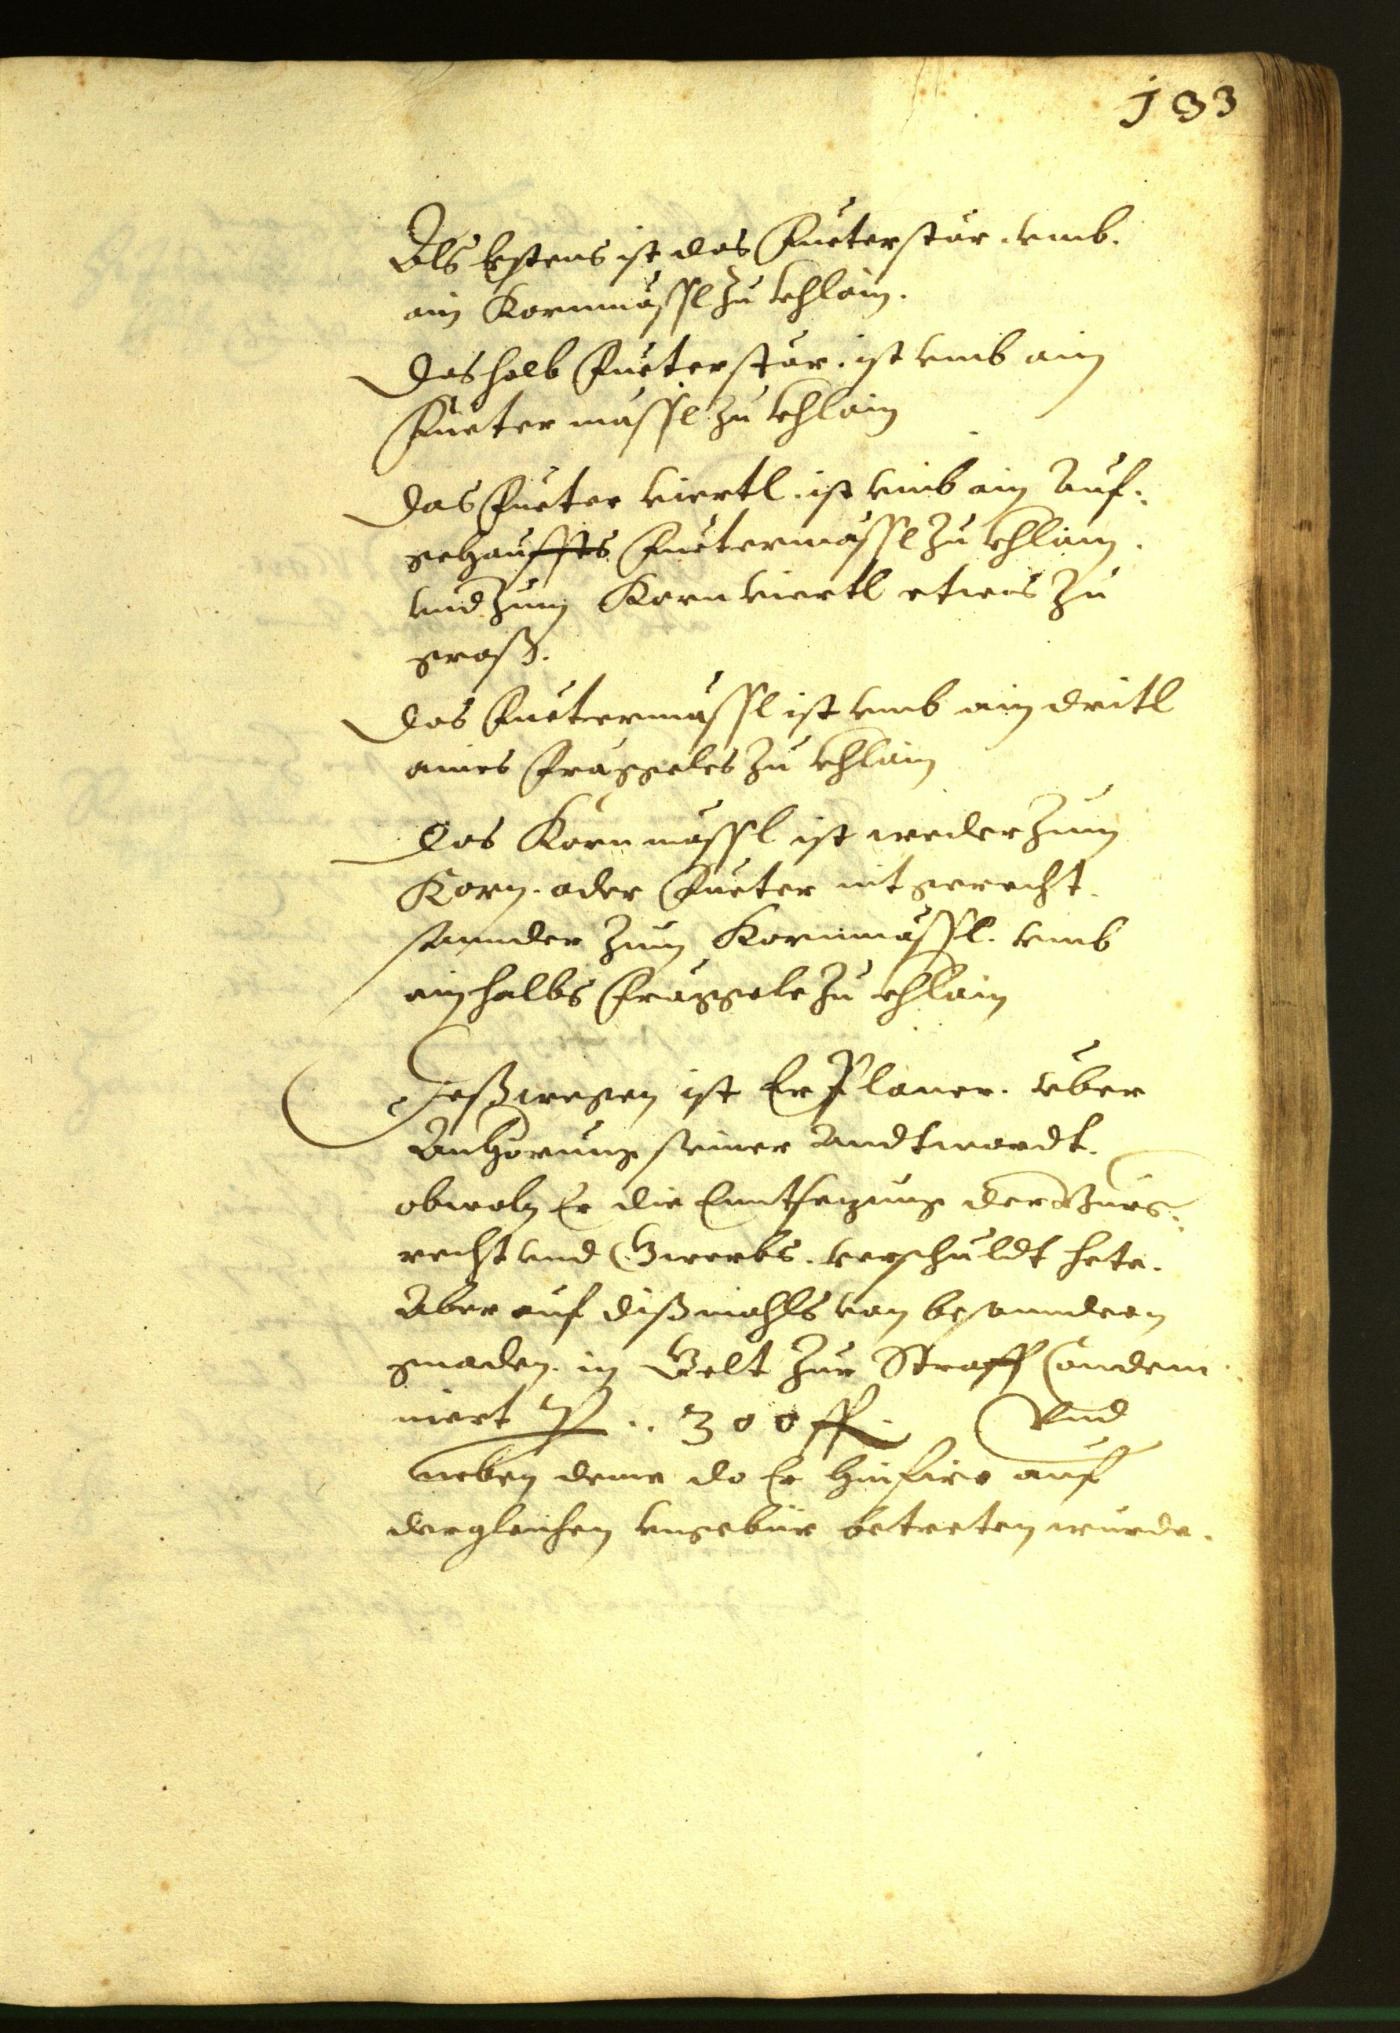 133
Als Erstens ist das Fueterstär. umb.
ain Kornmässl zu khlain.
Das halb Fueterstär. ist umb ain
Fuetermässl zu khlain
Das Fueter viertl. ist umb ain Auf-
gehauffts Fuetermässl zu khlain.
und zum Korn viertl etwas zu
groß.
Das Fuetermässl ist umb ain dritl
aines Fraggeles zu khlain
Das Kornmässl ist weder zum
Korn. oder Fueter nit gerecht.
sonnder zum Kornmässl. umb
ain halbs Fraggele zu khlain
Deßwegen ist Er Planer. über
Anhörung seiner Andtwordt.
obwoln Er die Enntsezung der Burg-
recht und Gwerbs. verschuldt hete.
Aber auf dißmahls von besonndern
gnaden. in Gelt zur Straff Condem
niert P .. 300 fl. Und
neben deme do Er hinfiro auf
dergleichen ungebür betreten wurde.